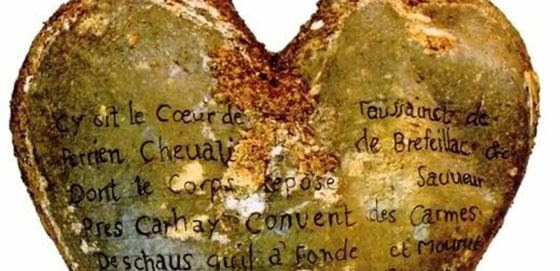 Cy Git le Coeur de Toussainct de
Perrien Cheuali de Brefeillac
Dont le Corps Repose Sauueur
Pres Carhay Convent des Carmes
Deschaus quil à Fonde et Mourut